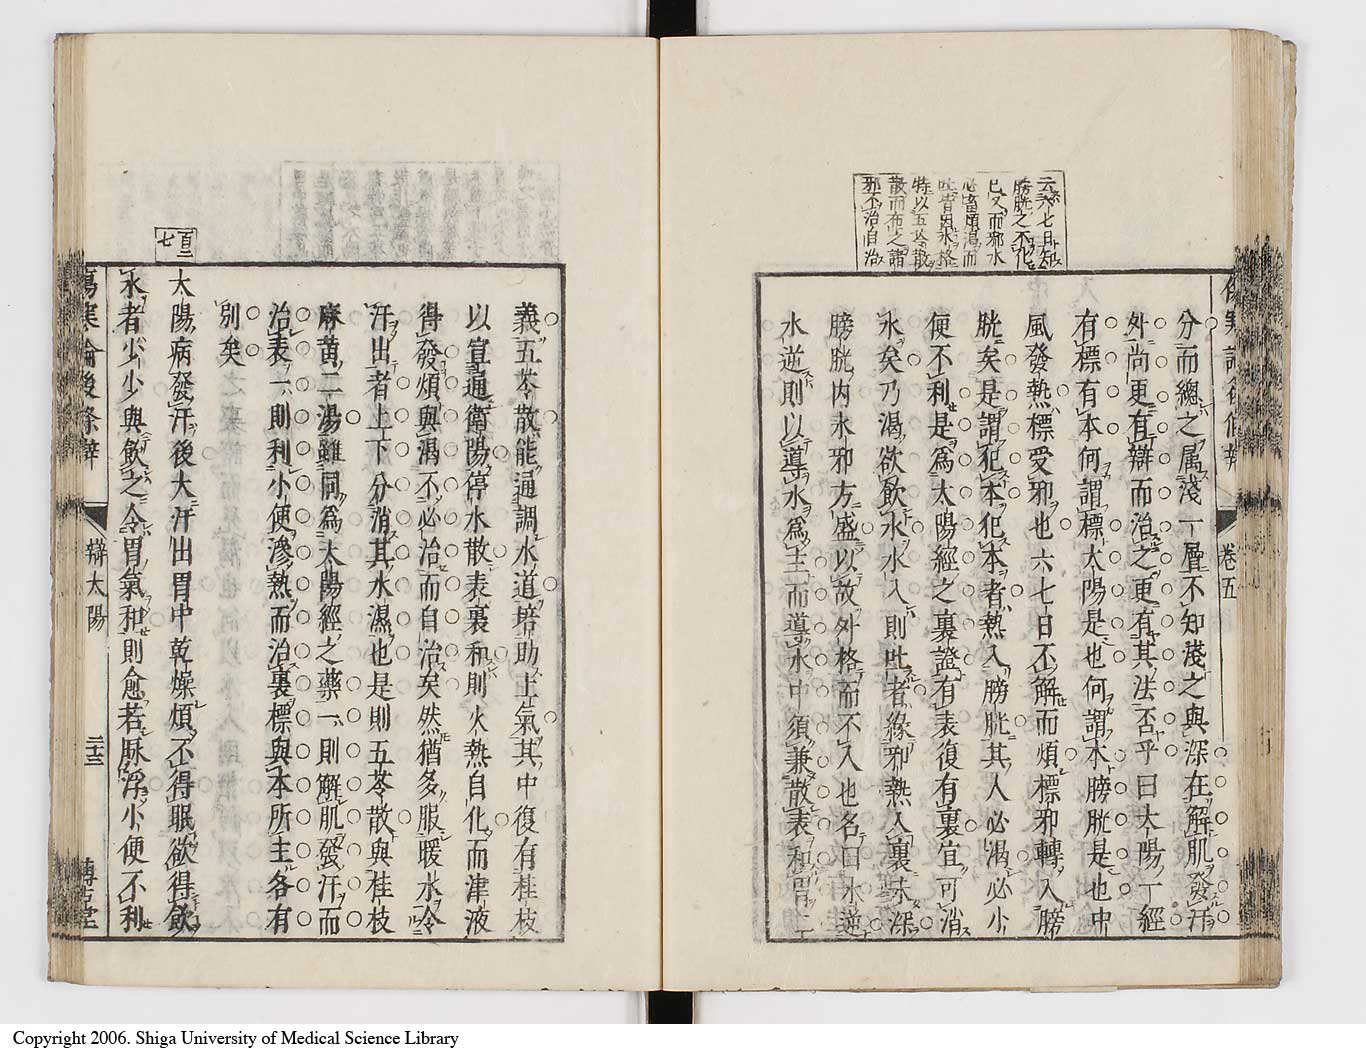 云六七日知
膀胱之不化
已又而邪水
必畜煩渴而
吐皆因水格
特以五苓散
散而布之謂
邪不治自治
卷五
分而總之属淺一層不知淺之與深在解肌發汗
外尚更有辯而治之更有其法否乎曰太陽一經
有標有本何謂標太陽是也何謂本膀胱是也中
風發熱標受邪也六七日不解而煩標邪轉入膀
胱矣是謂犯本犯本者熱入膀胱其人必渴必小
便不利是為太陽經之裏證有表復有裏宜可消
水矣乃渴欲飲水水入則吐者緣邪熱入裏未深
膀胱內水邪方盛以故外格而不入也名曰水逆
水逆則以導水為主而導水中須兼散表和胃二
義五苓散能通調水道培助土氣其中復有桂枝
以宣通衛陽停水散表裏和則火熱自化而津液
得發煩與渴不必治而自治矣然猶多服暖水令
汗出者上下分消其水濕也是則五苓散與桂枝
麻黃二湯雖同為太陽經之藥一則解肌發汗而
治表一則利小便滲熱而治裏標與本所主各有
別矣
百二
七
太陽病發汗後大汗出胃中乾燥煩不得眠欲得飲
水者少少與飲之令胃氣和則愈若脉浮小便不利
傷寒論後條辯
辯太陽
二十三
博古堂
Copyright 2006. Shiga University of Medical Science Library